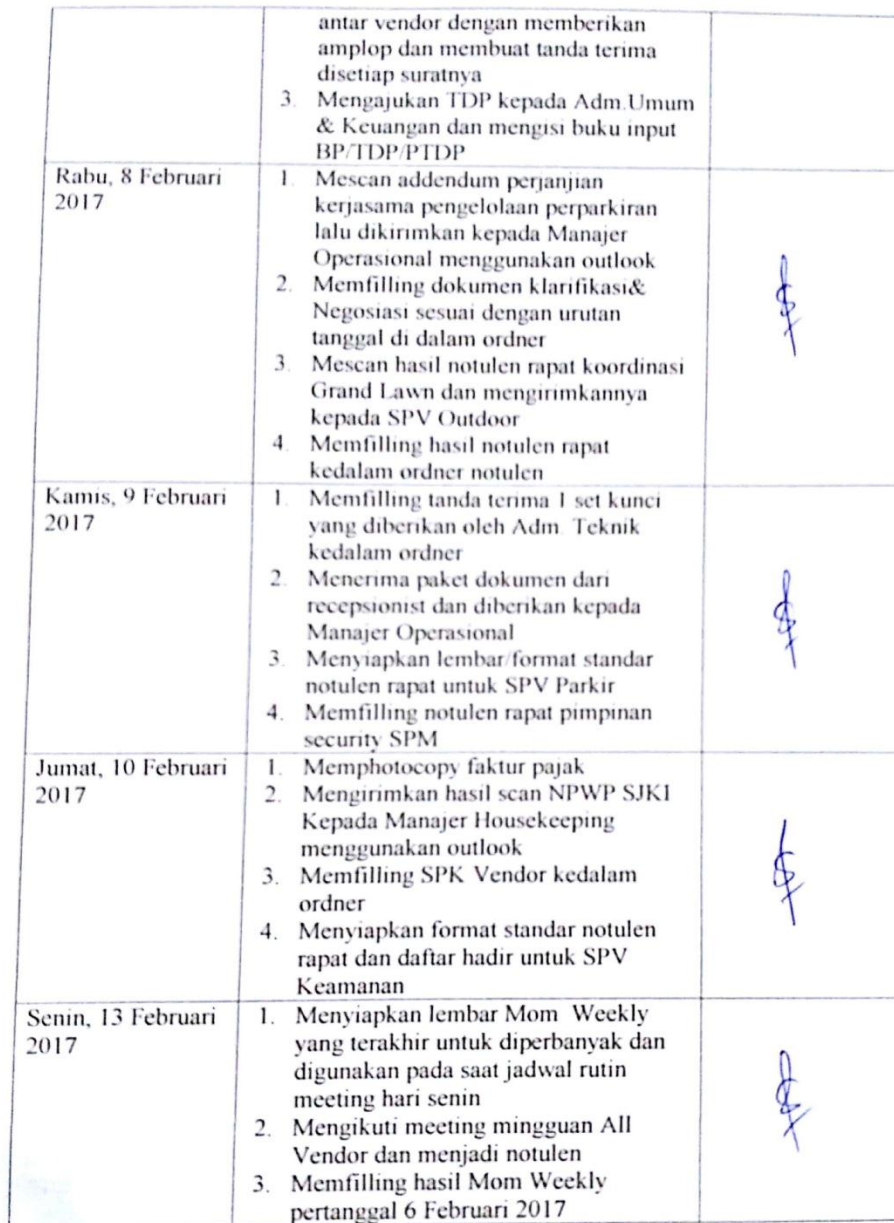 antar vendor dengan memberikan
amplop dan membuat tanda terima
disetiap suratnya
3. Mengajukan TDP kepada Adm.Umum
& Keuangan dan mengisi buku input
BP/TDP/PTDP
Rabu, 8 Februari
2017
1. Mescan addendum perjanjian
kerjasama pengelolaan perparkiran
lalu dikirimkan kepada Manajer
Operasional menggunakan outlook
2. Memfilling dokumen klarifikasi&
Negosiasi sesuai dengan urutan
tanggal di dalam ordner
3. Mescan hasil notulen rapat koordinasi
Grand Lawn dan mengirimkannya
kepada SPV Outdoor
4. Memfilling hasil notulen rapat
kedalam ordner notulen
Kamis, 9 Februari
2017
1. Memfilling tanda terima 1 set kunci
yang diberikan oleh Adm. Teknik
kedalam ordner
2. Menerima paket dokumen dari
recepsionist dan diberikan kepada
Manajer Operasional
3. Menyiapkan lembar/format standar
notulen rapat untuk SPV Parkir
4. Memfilling notulen rapat pimpinan
security SPM
Jumat, 10 Februari
2017
1. Memphotocopy faktur pajak
2. Mengirimkan hasil scan NPWP SJKI
Kepada Manajer Housekeeping
menggunakan outlook
3. Memfilling SPK Vendor kedalam
ordner
4. Menyiapkan format standar notulen
rapat dan daftar hadir untuk SPV
Keamanan
Senin, 13 Februari
2017
1. Menyiapkan lembar Mom Weekly
yang terakhir untuk diperbanyak dan
digunakan pada saat jadwal rutin
meeting hari senin
2. Mengikuti meeting mingguan All
Vendor dan menjadi notulen
3. Memfilling hasil Mom Weekly
pertanggal 6 Februari 2017